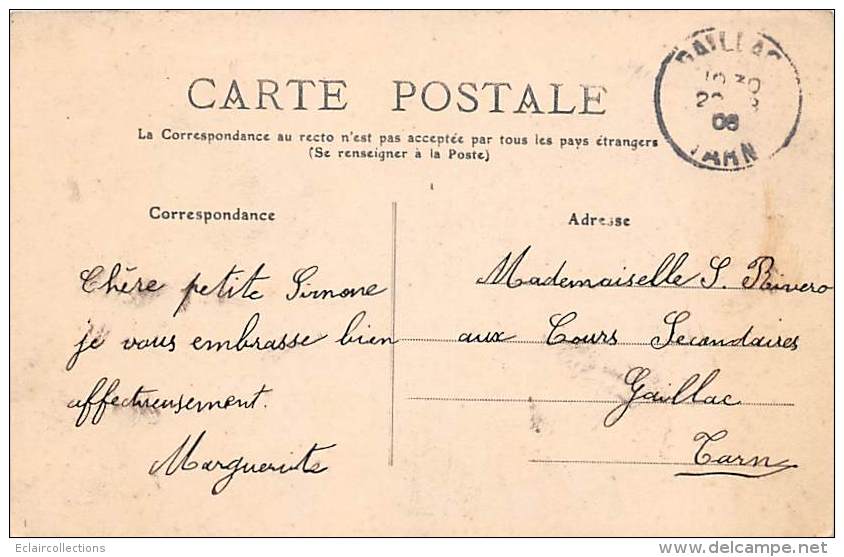 CARTE POSTALE
La Correspondance au recto n'est pas acceptée par tous les pays étrangers
(Se renseigner à la Poste)
GAILLAC
08
TARN
Correspondance
Chère petite Simone
je vous embrasse bien
affectueusement.
Marguerite
Adresse
Mademoiselle S. Rivero
aux Cours Secondaires
Gaillac
Tarn
Eclaircollections
www.delcampe.net